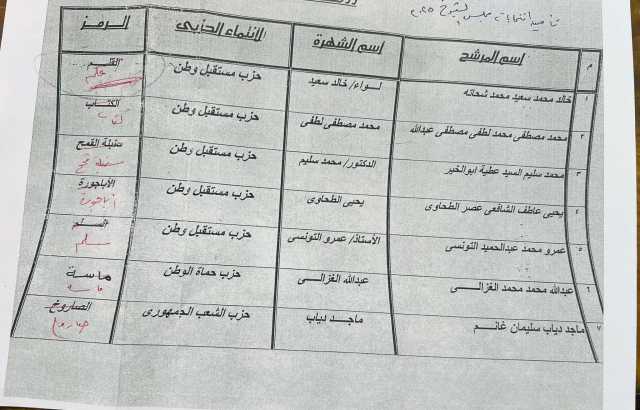 انتخابات مجلس الشيوخ ٢٠٢٥
م اسم المرشح اسم الشهرة الانتماء الحزبى الرمز
١ خالد محمد سعيد محمد شحاته لـــواء/ خالد سعيد حزب مستقبل وطن القلـــم
قلم
٢ محمد مصطفى محمد لطفى مصطفى عبدالله محمد مصطفى لطفى حزب مستقبل وطن الكتـــاب
كتاب
٣ محمد سليم السيد عطية ابوالخير الدكتور/ محمد سليم حزب مستقبل وطن سنبلة القمح
سنبلة قمح
٤ يحيى عاطف الشافعى عصر الطحاوى يحيى الطحاوى حزب مستقبل وطن الأباجورة
أباجورة
٥ عمرو محمد عبدالحميد التونسى الأستاذ/ عمرو التونسى حزب مستقبل وطن السلـــم
سلم
٦ عبدالله محمد محمد الغزالـــى عبدالله الغزالـــى حزب حماة الوطن ماسة
ماسه
٧ ماجد دياب سليمان غانـــم ماجـــد دياب حزب الشعب الجمهورى الصاروخ
صاروخ